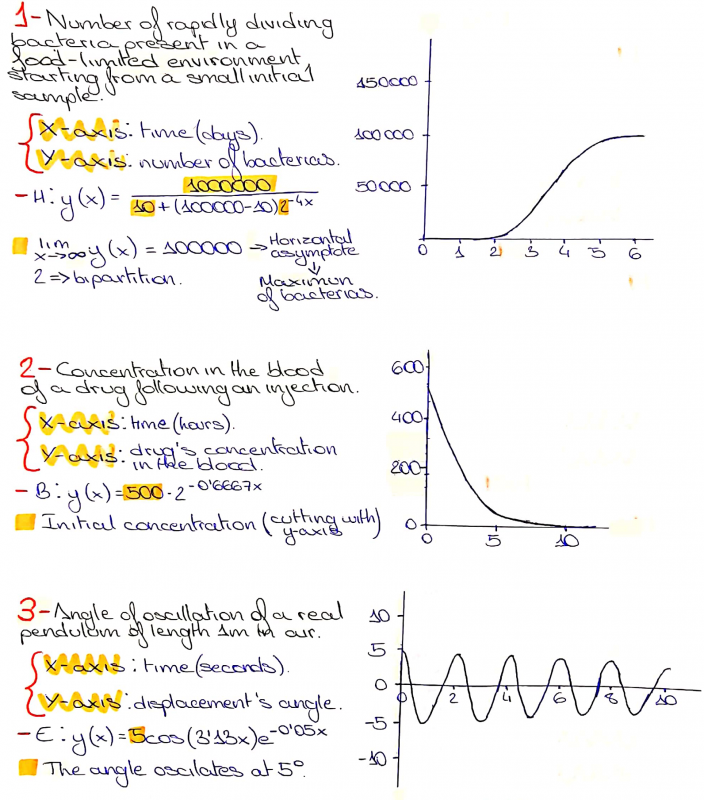 1-Number of rapidly dividing
bacteria present in a
food-limited environment,
starting from a small initial
sample.
X-axis: time (days).
Y-axis: number of bacterias.
- H: y(x) = 1000000 / 10 + (100000-10)2^-4x
lim x->∞ y(x) = 100000 -> Horizontal asymptote
2 => bipartition.
Maximun of bacterias.
150000
100000
50000
0
1 2 3 4 5 6
2-Concentration in the blood
of a drug following an injection.
X-axis: time (hours).
Y-axis: drug's concentration
in the blood.
- B: y(x) = 500 · 2^-0'6667x
Initial concentration (cutting with
y-axis)
600
400
200
0
0 5 10
3-Angle of oscillation of a real
pendulum of length 1m in air.
X-axis: time (seconds).
Y-axis: displacement's angle.
- E: y(x) = 5cos(3'13x)e^-0'05x
The angle oscilates at 5°.
10
5
0
-5
-10
0 2 4 6 8 10